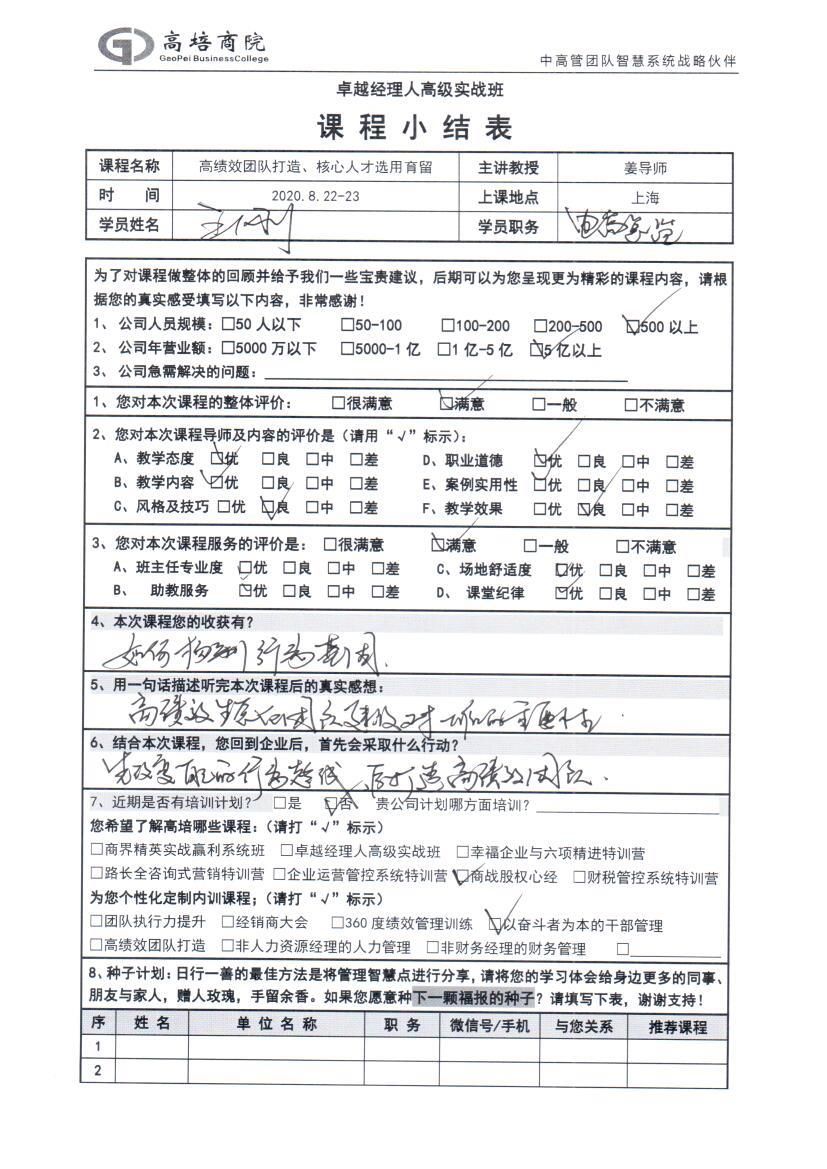 高培商院
GaoPei BusinessCollege
中高管团队智慧系统战略伙伴
卓越经理人高级实战班
课程小结表
课程名称 高绩效团队打造、核心人才选用育留 主讲教授 姜导师
时 间 2020.8.22-23 上课地点 上海
学员姓名 学员职务
为了对课程做整体的回顾并给予我们一些宝贵建议，后期可以为您呈现更为精彩的课程内容，请根
据您的真实感受填写以下内容，非常感谢！
1、公司人员规模：□50人以下 □50-100 □100-200 □200-500 ☑500以上
2、公司年营业额：□5000万以下 □5000-1亿 □1亿-5亿 ☑5亿以上
3、公司急需解决的问题：
1、您对本次课程的整体评价： □很满意 ☑满意 □一般 □不满意
2、您对本次课程导师及内容的评价是（请用“√”标示）：
A、教学态度 ☑优 □良 □中 □差 D、职业道德 ☑优 □良 □中 □差
B、教学内容 ☑优 □良 □中 □差 E、案例实用性 ☑优 □良 □中 □差
C、风格及技巧 □优 ☑良 □中 □差 F、教学效果 □优 ☑良 □中 □差
3、您对本次课程服务的评价是： □很满意 ☑满意 □一般 □不满意
A、班主任专业度 ☑优 □良 □中 □差 C、场地舒适度 ☑优 □良 □中 □差
B、 助教服务 ☑优 □良 □中 □差 D、 课堂纪律 ☑优 □良 □中 □差
4、本次课程您的收获有？
如何 行为
5、用一句话描述听完本次课程后的真实感想：
高绩效 团队建设对
6、结合本次课程，您回到企业后，首先会采取什么行动？
先改变 行为 ，后打造高绩效团队.
7、近期是否有培训计划？ □是 ☑否 贵公司计划哪方面培训？
您希望了解高培哪些课程：（请打“√”标示）
□商界精英实战赢利系统班 □卓越经理人高级实战班 □幸福企业与六项精进特训营
□路长全咨询式营销特训营 □企业运营管控系统特训营 ☑商战股权心经 □财税管控系统特训营
为您个性化定制内训课程；（请打“√”标示）
□团队执行力提升 □经销商大会 □360度绩效管理训练 ☑以奋斗者为本的干部管理
□高绩效团队打造 □非人力资源经理的人力管理 □非财务经理的财务管理 □
8、种子计划：日行一善的最佳方法是将管理智慧点进行分享，请将您的学习体会给身边更多的同事、
朋友与家人，赠人玫瑰，手留余香。如果您愿意种下一颗福报的种子？请填写下表，谢谢支持！
序 姓 名 单 位 名 称 职 务 微信号/手机 与您关系 推荐课程
1
2